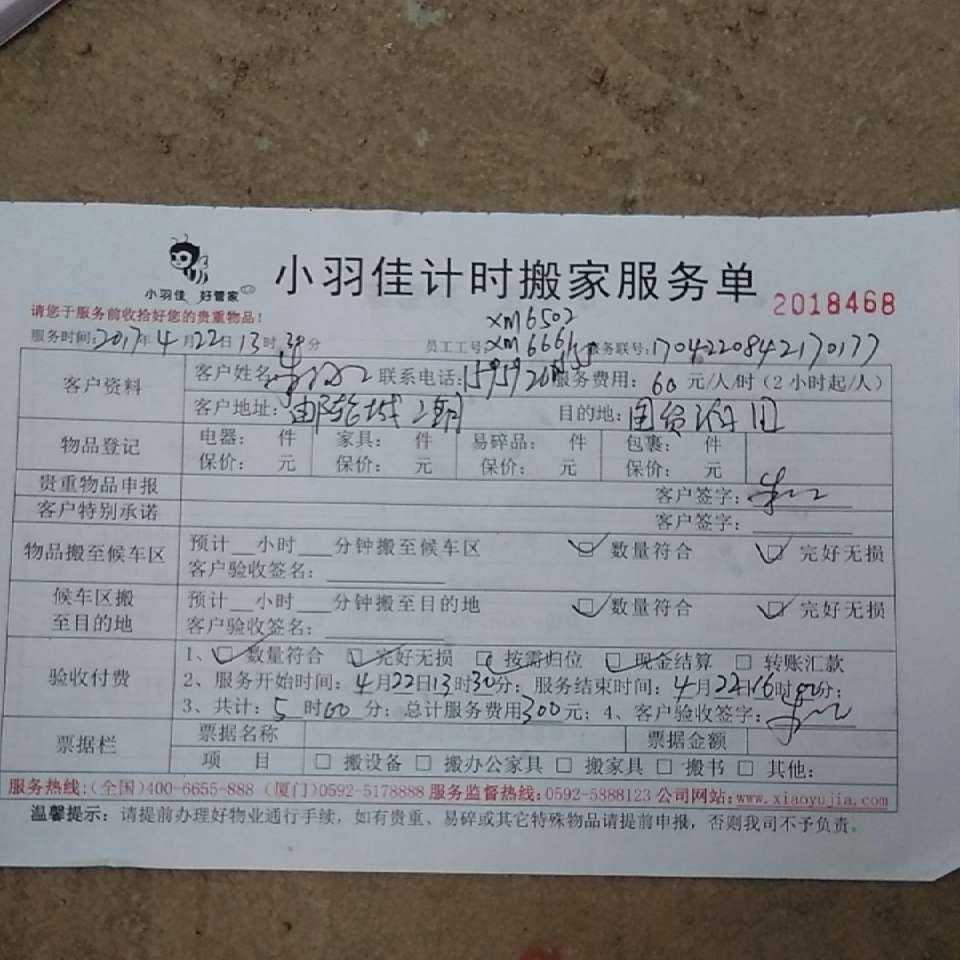 小羽佳 好管家
小羽佳计时搬家服务单
2018468
请您于服务前收拾好您的贵重物品！
xm6502
服务时间:2017年4月22日13时30分 员工工号:xm666 服务联号:1704220842170177
客户资料 客户姓名 联系电话: 服务费用: 60元/人/时（2小时起/人）
客户地址:邮轮城二期 目的地:国贸
物品登记 电器: 件 家具: 件 易碎品: 件 包裹: 件
保价: 元 保价: 元 保价: 元 保价: 元
贵重物品申报 客户签字:
客户特别承诺 客户签字:
物品搬至候车区 预计__小时___分钟搬至候车区 ☑数量符合 ☑完好无损
客户验收签名:
候车区搬至目的地 预计__小时___分钟搬至目的地 ☑数量符合 ☑完好无损
客户验收签名:
验收付费 1、☑数量符合 ☑完好无损 ☑按需归位 ☑现金结算 □转账汇款
2、服务开始时间: 4月22日13时30分; 服务结束时间: 4月22日16时00分;
3、共计: 5时00分; 总计服务费用300元; 4、客户验收签字:
票据栏 票据名称 票据金额
项 目 □搬设备 □搬办公家具 □搬家具 □搬书 □其他:
服务热线:(全国)400-6655-888 (厦门)0592-5178888 服务监督热线:0592-5888123 公司网站:www.xiaoyujia.com
温馨提示: 请提前办理好物业通行手续，如有贵重、易碎或其它特殊物品请提前申报，否则我司不予负责。